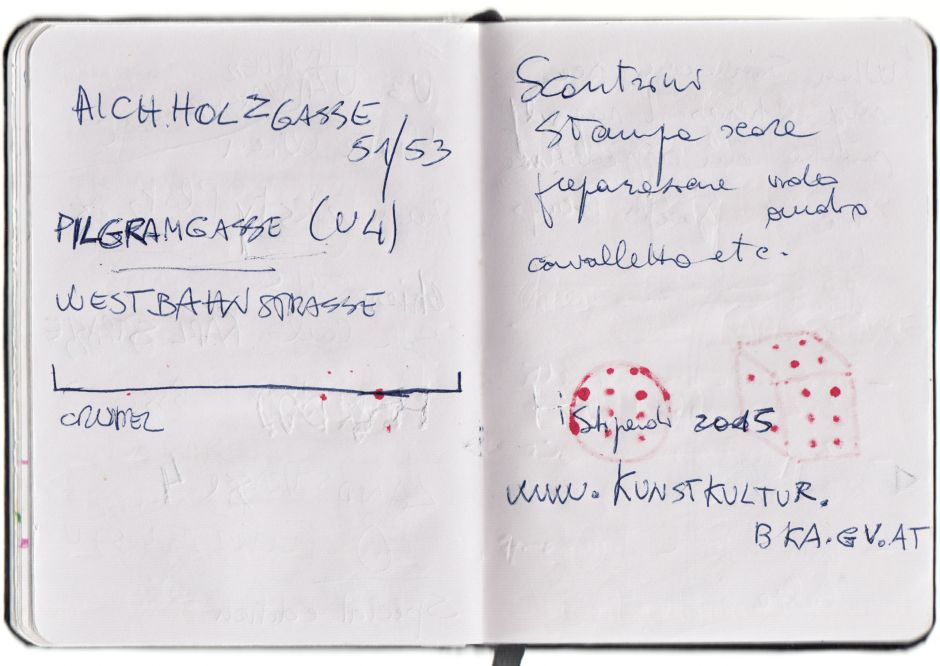 AICHHOLZGASSE
51/53
PILGRAMGASSE (U4)
WESTBAHNSTRASSE
Scontrini
Stampa
preparazione video
audio
cavalletto etc.
Stipendi 2015
www.KUNSTKULTUR.
BKA.GV.AT